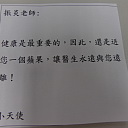 振昊老師:
健康是最重要的,因此,還是送
您一個蘋果,讓醫生永遠與您遠
離!
小天使